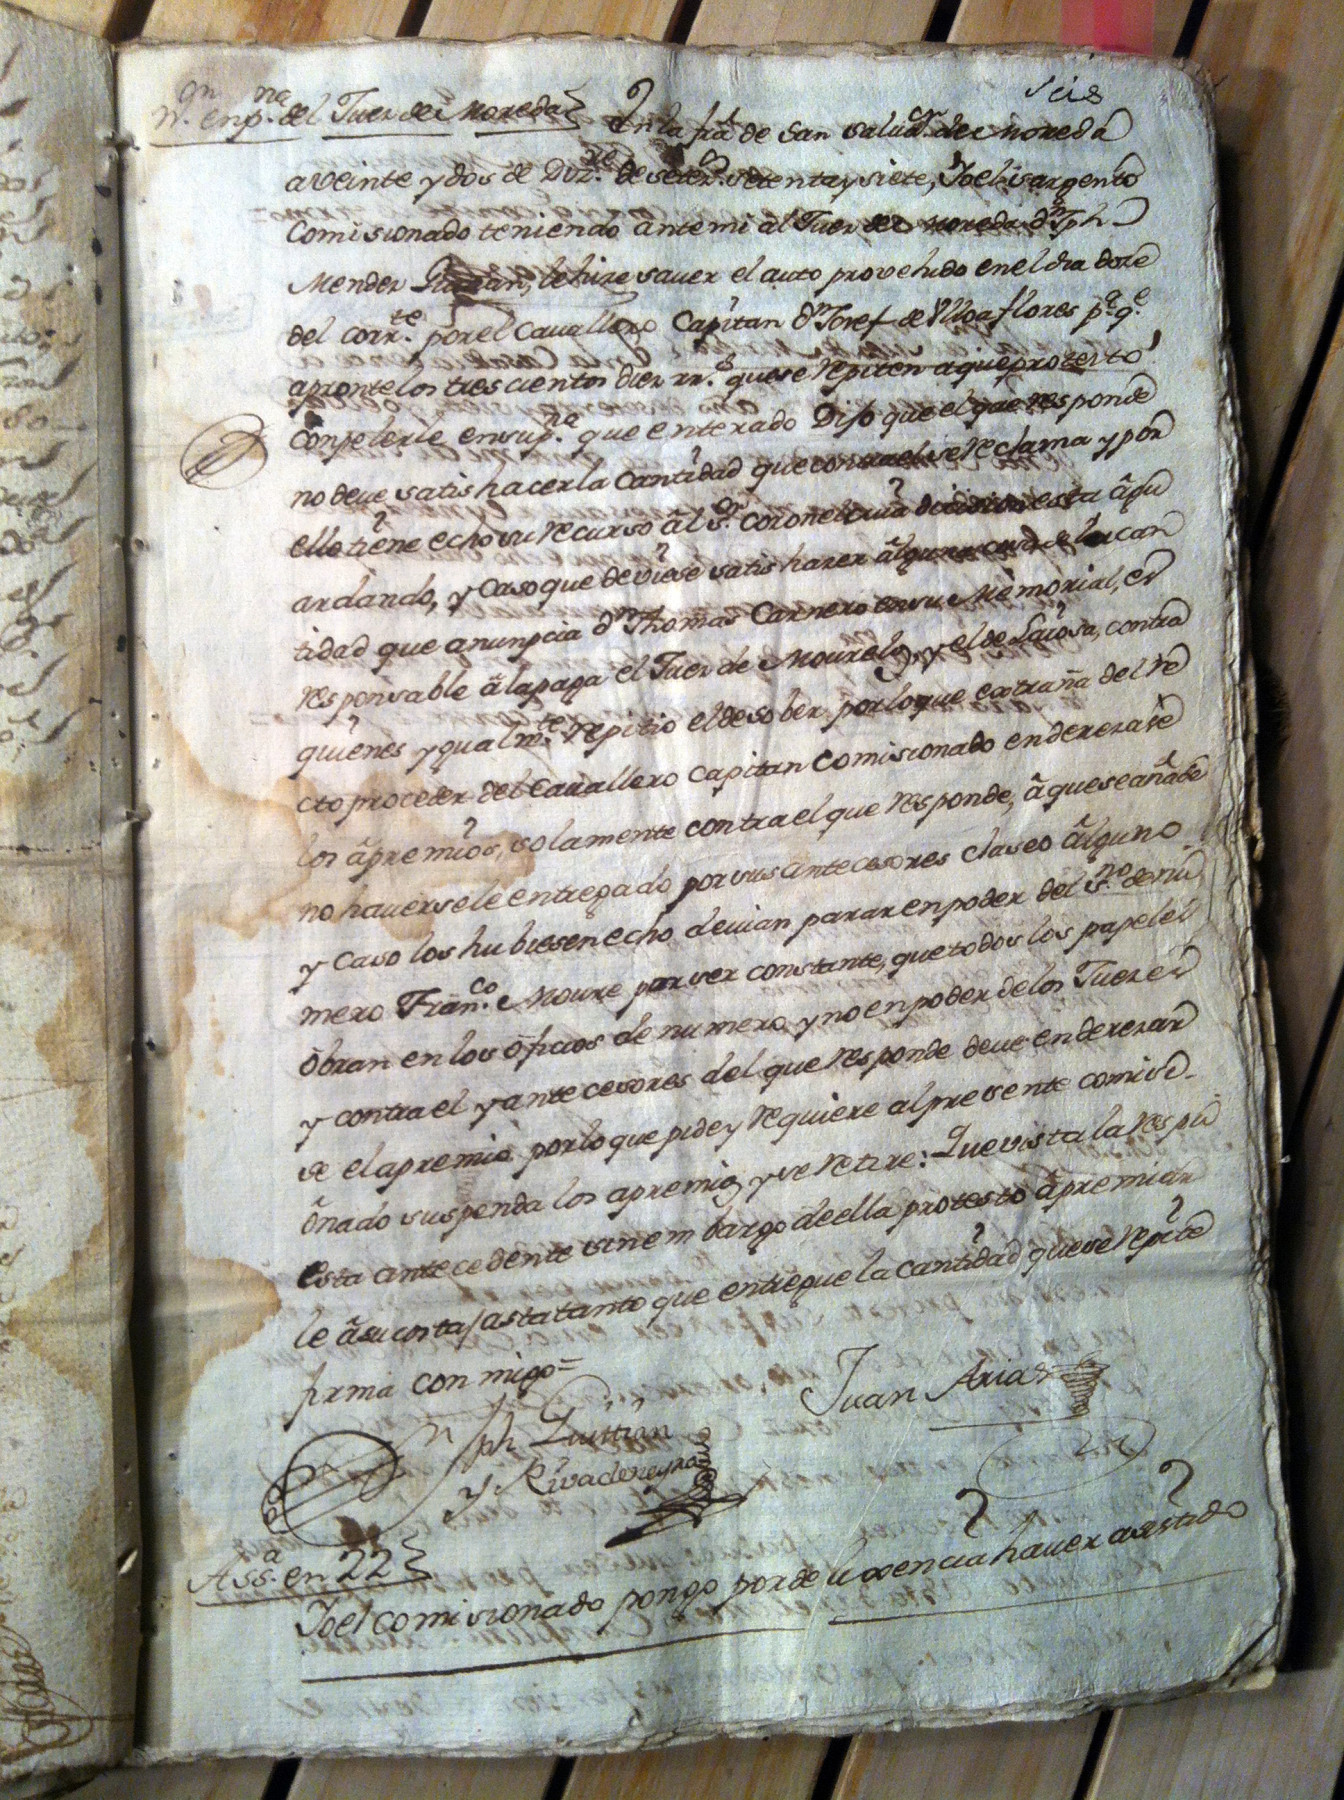 seis
Nn. en pna. del Juez de Noreda
En la fra. de San Salvor. de Noreda
a veinte y dos de Dizre. de setezs. setenta y siete, Yo el sargento
Comisionado teniendo ante mi al Juez de Noreda Dn. Jph
Mendez Guitian, le hize saver el auto provehido en el dia doze
del corrte. por el Cavallero Capitan Dn. Josef de Ulloa flores pa. qe.
apronte los tres cientos diez rrs. que se repiten a que protesto
Conpelerle en su pna. que enterado Dijo que el que responde
no deve satishacer la Cantidad que contra el se reclama y por
ello tiene echo su recurso âl Sor. Coronel cuia dicision esta âgu
ardando, y Caso que deviese satishazer âlguna de la can
tidad que anunpcia Dn. Thomas Carnero en su Memorial, es
responsable â la paga el Juez de Mourelos, y el de Laiosa, contra
quienes ygualmte. repitio el desober por lo que extraña del re
cto proceder del Cavallero Capitan Comisionado enderezase
los âpremios, solamente contra el que responde, â que se añade
no haversele entregado por sus antecesores claseo âlguno
y Caso los hubiesen echo devian parar en poder del sno. de nu
mero Franco. Moure por ser constante, que todos los papeles
ôbran en los ôficios de numero y no en poder de los Juezes
y contra el y antecesores del que responde deve enderezar
se el apremio por lo que pide y requiere al presente comisi-
ônado suspenda los apremios, y se retire: Que vista la respu
esta antecedente sin embargo de ella protesto âpremiar
le â su costa astatanto que entregue la cantidad que se repite
firma con migo=
Juan Arias
Jph Guittian
y Rivadeneyra
Assa. en 22
Yo el comisionado pongo por de lixencia haver asistido